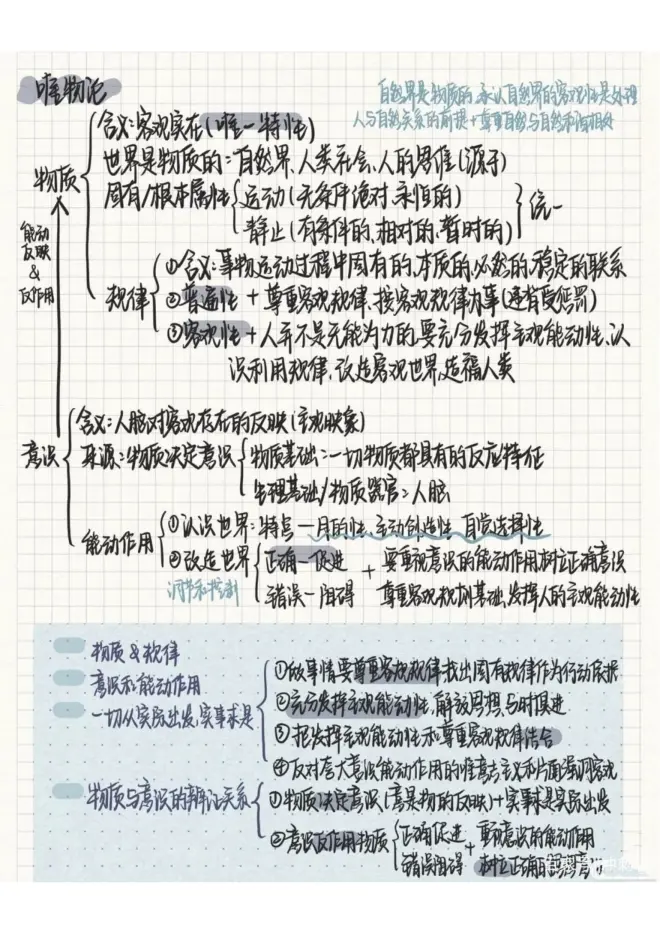 唯物论
自然界是物质的,承认自然界的客观性是处理
人与自然关系的前提+尊重自然,与自然和谐相处
含义:客观实在(唯一特性)
世界是物质的:自然界、人类社会、人的思维(源于)
物质
固有/根本属性
运动(无条件,绝对,永恒的)
静止(有条件的,相对的,暂时的)
统一
能动
反映
&
反作用
规律
①含义:事物运动过程中固有的,本质的,必然的,稳定的联系
②普遍性+尊重客观规律,按客观规律办事(违背受惩罚)
③客观性+人并不是无能为力的,要充分发挥主观能动性,认
识利用规律,改造客观世界,造福人类
意识
含义:人脑对客观存在的反映(主观映象)
来源:物质决定意识
物质基础:一切物质都具有的反应特征
生理基础/物质器官:人脑
能动作用
①认识世界:特点—目的性,主动创造性,自觉选择性
②改造世界
调节和控制
正确—促进
错误—阻碍
+ 要重视意识的能动作用,树立正确意识
尊重客观规律基础,发挥人的主观能动性
物质&规律
意识和能动作用
一切从实际出发,实事求是
①做事情要尊重客观规律,找出固有规律作为行动依据
②充分发挥主观能动性,解放思想,与时俱进
③把发挥主观能动性和尊重客观规律结合
④反对夸大意识能动作用的唯意志主义和片面强调客观
物质与意识的辩证关系
①物质决定意识(意是物的反映)+实事求是,实际出发
②意识反作用物质
正确促进
错误阻碍
+ 重视意识的能动作用
树立正确的